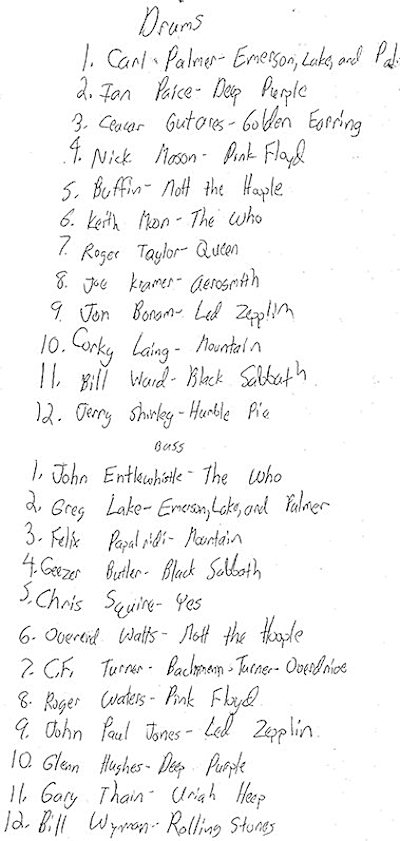 Drums
1. Carl Palmer- Emerson, Lake, and Pal
2. Ian Paice- Deep Purple
3. Ceacar Gutares- Golden Earring
4. Nick Mason- Pink Floyd
5. Buffin- Mott the Hoople
6. Keith Moon- The Who
7. Roger Taylor- Queen
8. Joe Kramer- Aerosmith
9. Jon Bonam- Led Zepplin
10. Corky Laing- Mountain
11. Bill Ward- Black Sabbath
12. Jerry Shirley- Humble Pie
Bass
1. John Entlewhistle- The Who
2. Greg Lake- Emerson, Lake, and Palmer
3. Felix Papalridi- Mountain
4. Geezer Butler- Black Sabbath
5. Chris Squire- Yes
6. Overend Watts- Mott the Hoople
7. C.F. Turner- Bachmann-Turner-Overdrive
8. Roger Waters- Pink Floyd
9. John Paul Jones- Led Zepplin
10. Glenn Hughes- Deep Purple
11. Gary Thain- Uriah Heep
12. Bill Wyman- Rolling Stones